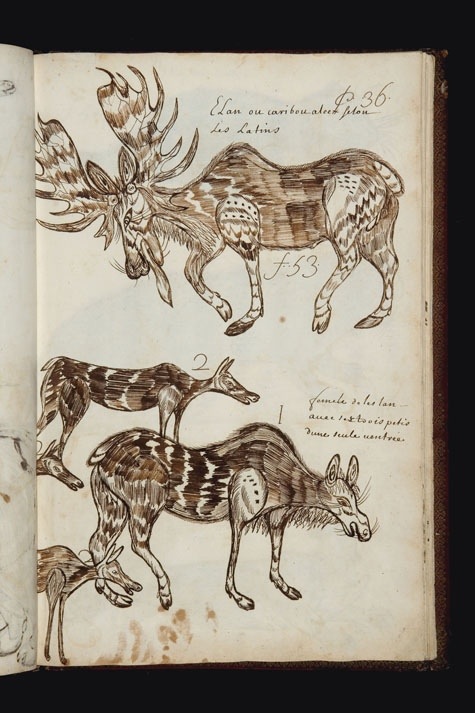 P. 36.
Elan ou caribou alces selon
Les Latins
f. 53
2
1
femele de lelan
avec ses trois petis
dune seule ventree